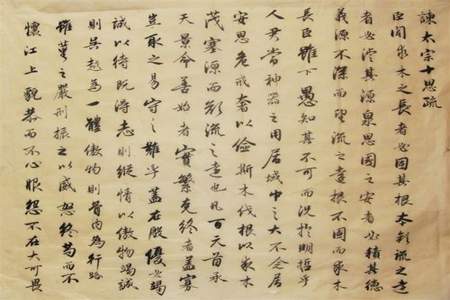 諫太宗十思疏
臣聞求木之長者必固其根本欲流之遠
者必浚其源泉思國之安者必積其德
義源不深而望流之遠根不固而求木
長臣雖下愚知其不可而況於明哲乎
人君當神器之用居城中之大不念居
安思危戒奢以儉斯木伐根以求木
茂塞源而欲流之遠也凡百天首承
天景命善始者實繁克終者蓋寡
豈取之易守之難乎蓋在殷憂必竭
誠以待既得志則縱情以傲物竭誠
則吳越為一體傲物則骨肉為行路
雖董之嚴刑振之以威怒終苟而不
懷江上貌恭而不心眼怨不在大可畏